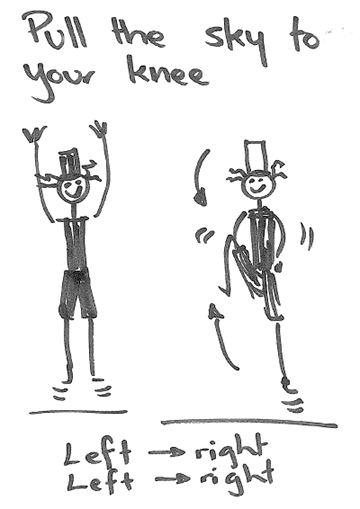 Pull the sky to
your knee
Left → right
Left → right